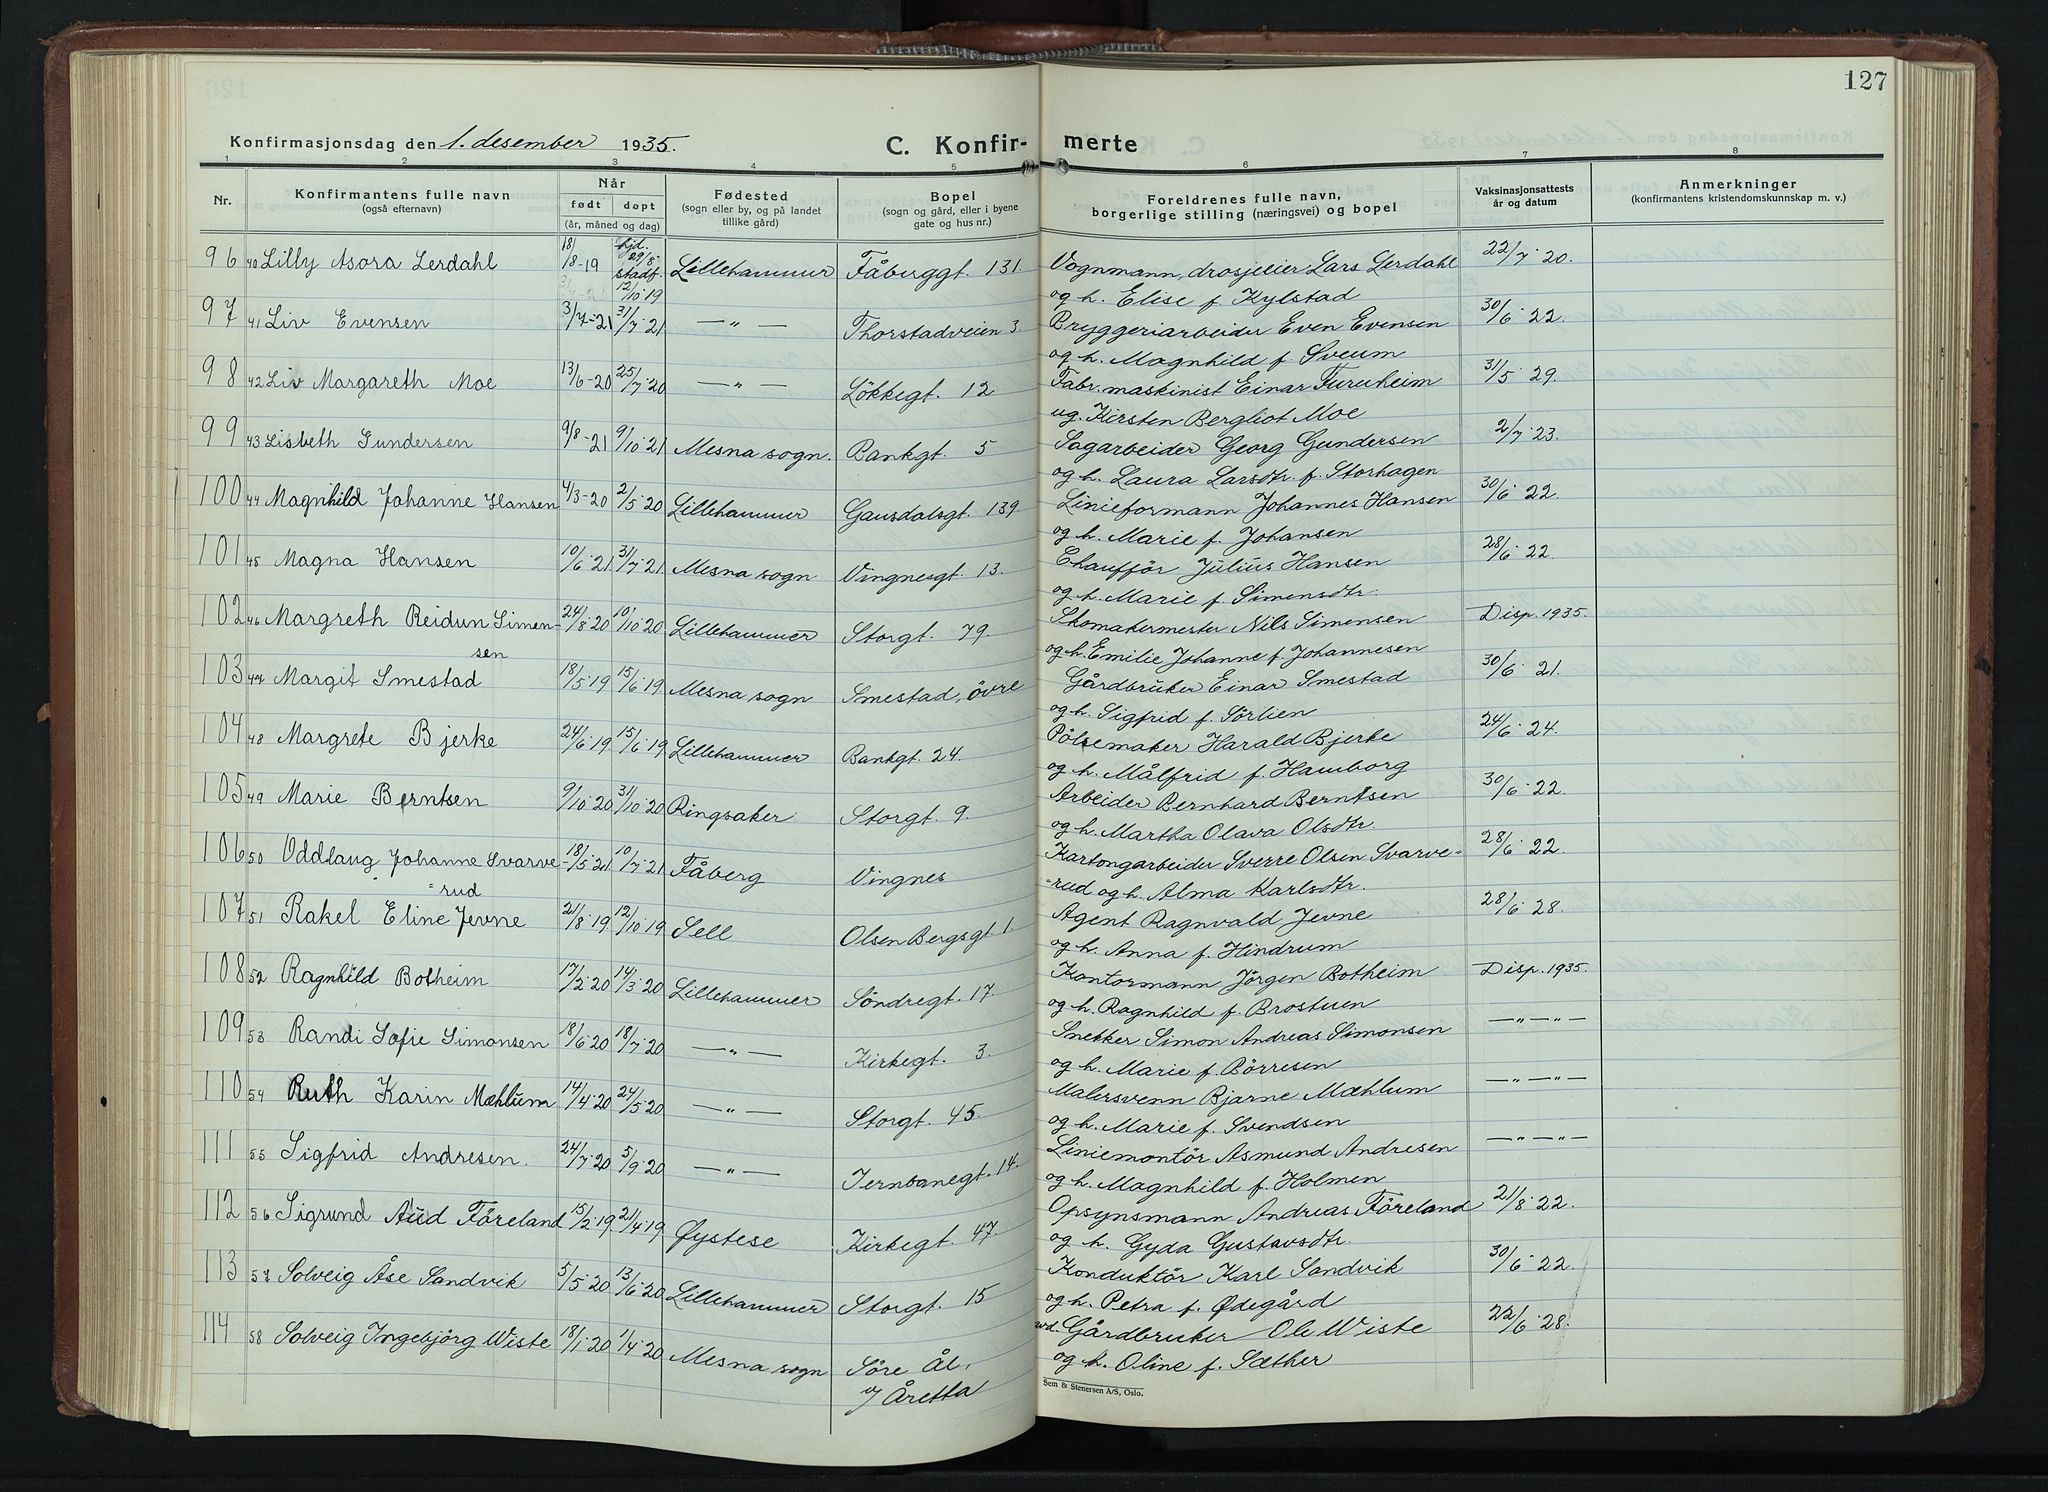 127
Konfirmasjonsdag den 1. desember 1935.
C. Konfir-
merte
1 2 3 4 5 6 7 8
Nr. Konfirmantens fulle navn (også efternavn) Når født døpt (år, måned og dag) Fødested (sogn eller by, og på landet tillike gård) Bopel (sogn og gård, eller i byene gate og hus nr.) Foreldrenes fulle navn, borgerlige stilling (næringsvei) og bopel Vaksinasjonsattests år og datum Anmerkninger (konfirmantens kristendomskunnskap m. v.)
96 40 Lilly Asora Lerdahl 18/8-19 hjd. 29/8 stadf. 12/10 19 Lillehammer Fåberggt. 131. Vognmann, drosjeeier Lars Lerdahl 22/7 20.
og h. Elise f. Kylstad
97 41 Liv Evensen 3/7-21 31/7 21 — „ — Thorstadveien 3. Bryggeriarbeider Even Evensen 30/6 22.
og h. Magnhild f. Sveum
98 42 Liv Margareth Moe 13/6-20 25/7 20 — „ — Løkkegt. 12 Fabr. maskinist Einar Furuheim 31/5 29.
ug. Kirsten Bergliot Moe
99 43 Lisbeth Gundersen 9/8-21 9/10 21 Mesna sogn. Bankgt. 5 Sagarbeider Georg Gundersen 2/7 23.
og h. Laura Larsdtr. f. Storhagen
100 44 Magnhild Johanne Hansen 4/3-20 2/5 20 Lillehammer Gausdalsgt. 139. Linieformann Johannes Hansen 30/6 22.
og h. Marie f. Johansen
101 45 Magna Hansen 10/6 21 31/7 21 Mesna sogn Vingnesgt. 13. Chaufför Julius Hansen 28/6 22.
og h. Marie f. Simensdtr.
102 46 Margreth Reidun Simen- 24/8 20 10/10 20 Lillehammer Storgt. 79. Skomakermester Nils Simensen Disp. 1935.
sen og h. Emilie Johanne f. Johannesen
103 47 Margit Smestad 18/5 19 15/6 19 Mesna sogn Smestad, övre Gårdbruker Einar Smestad 30/6 21.
og h. Sigfrid f. Sörlien
104 48 Margrete Bjerke 24/6 19 15/6 19 Lillehammer Bankgt. 24. Pölsemaker Harald Bjerke 24/6 24.
og h. Målfrid f. Hamborg
105 49 Marie Berntsen 9/10 20 31/10 20 Ringsaker Storgt. 9. Arbeider Bernhard Berntsen 30/6 22.
og h. Martha Olava Olsdtr.
106 50 Oddlaug Johanne Svarve- 18/5 21 10/7 21 Fåberg Vingnes Kartongarbeider Sverre Olsen Svarve- 28/6 22.
-rud -rud og h. Alma Karlsdtr.
107 51 Rakel Eline Jevne 21/8 19 12/10 19 Sell Olsen Bergsgt. 1. Agent Ragnvald Jevne 28/6 28.
og h. Anna f. Hindrum
108 52 Ragnhild Botheim 17/2 20 14/3 20 Lillehammer Söndregt. 17 Kontormann Jörgen Botheim Disp. 1935.
og h. Ragnhild f. Brostuen
109 53 Randi Sofie Simonsen 18/6 20 18/7 20 — „ — Kirkegt. 3. Snekker Simon Andreas Simonsen — „ — „ —
og h. Marie f. Börresen
110 54 Ruth Karin Mæhlum 14/4 20 24/5 20 — „ — Storgt. 45. Malersvenn Bjarne Mæhlum — „ — „ —
og h. Marie f. Svendsen
111 55 Sigfrid Andresen. 24/7 20 5/9 20 — „ — Jernbanegt. 14. Liniemontör Asmund Andresen — „ — „ —
og h. Magnhild f. Holmen
112 56 Sigrund Aud Föreland 15/2 19 21/4 19 Øystese Kirkegt. 47. Opsynsmann Andreas Föreland 21/8 22.
og h. Gyda Gustavsdtr.
113 57 Solveig Åse Sandvik 5/5 20 13/6 20 Lillehammer Storgt. 15 Konduktör Karl Sandvik 30/6 22.
og h. Petra f. Ødegård
114 58 Solveig Ingebjörg Wiste 18/1 20 1/4 20 Mesna sogn Söre Ål, Gårdbruker Ole Wiste 22/6 28.
Åretta og h. Oline f. Sæther
Sem & Stenersen A/S, Oslo.